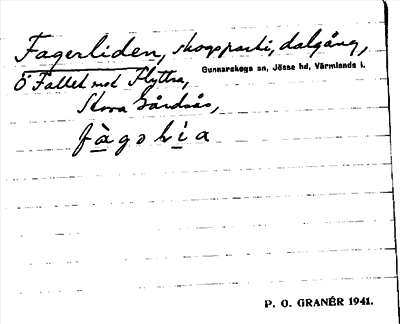 Fagerliden, skogsparti, dalgång,
Gunnarskogs sn, Jösse hd, Värmlands l.
Ö Fallet mot Flyttra,
Stora Gårdsås,
P. O. GRANÉR 1941.